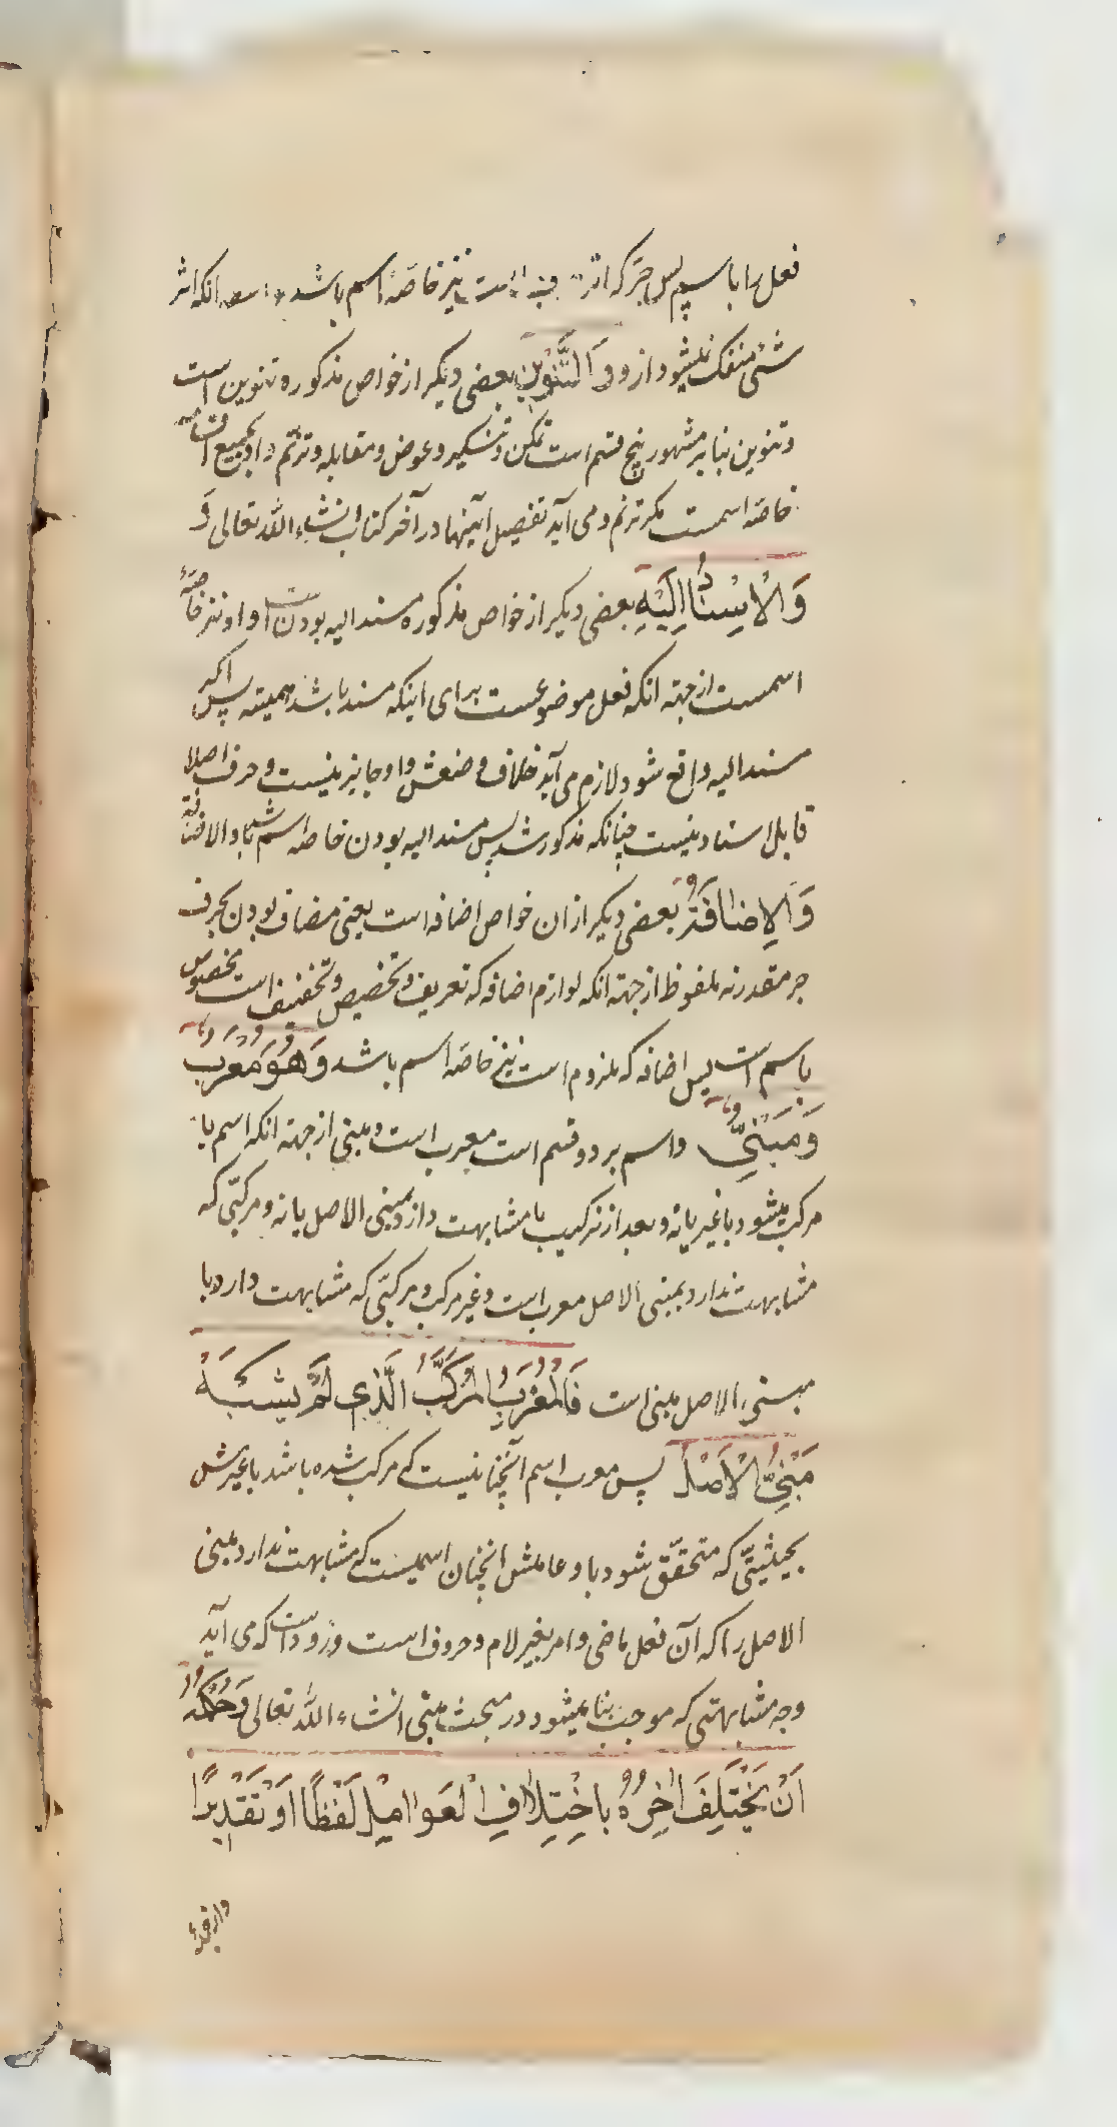 فعل را با سم پس جر که اثر است نیز خاصهٔ اسم باشد انکه اثر
شئ منفک نمیشود ازو وَالتَّنْوِین بعضی دیکر از خواص مذکوره تنوین است
وتنوین بنا بر مشهور پنج قسم است تمکن وتنکیر وعوض ومقابله وترنم واو بجمیع اقسامه
خاصّه اسمست مکر ترنم ومی آید تفصیل اینها در آخر کتاب انشاء الله تعالی وَ
وَالْاِسْنَادُ اِلَیْهِ بعضی دیکر از خواص مذکوره مسند الیه بودن است واو نیز خاصّهٔ
اسمست از جهته انکه فعل موضوعست برای اینکه مسند باشد همیشه پس اکر
مسند الیه واقع شود لازم می آید خلاف وضعش واو جایز نیست وحرف اصلا
قابل اسناد نیست چنانکه مذکور شد پس مسند الیه بودن خاصه اسم شد والاضافة
وَالْاِضَافَةُ بعضی دیکر از ان خواص اضافه است یعنی مضاف بودن بحرف
جر مقدر نه ملفوظ از جهته انکه لوازم اضافه که تعریف وتخصیص وتخفیف است مخصوص
باسم است پس اضافه که ملزوم است نیز خاصّه اسم باشد وَهُوَ مُعْرَبٌ
وَمَبْنِیٌّ واسم بر دو قسم است معرب است ومبنی از جهته انکه اسم یا
مرکب میشود با غیر یا نه وبعد از ترکیب یا مشابهت دارد بمبنی الاصل یا نه ومرکبّی که
مشابهت ندارد بمبنی الاصل معرب است وغیر مرکب ومرکبّی که مشابهت دارد با
مبنی الاصل مبنی است فَالْمُعْرَبُ الْمُرَکَّبُ الَّذِی لَمْ یُشْبِهْ
مَبْنِیَّ الْاَصْلِ پس معرب اسم آنچنانیست که مرکب شده باشد با غیرش
بحیثیتّی که متحقّق شود با و عاملش انچنان اسمیست که مشابهت ندارد مبنی
الاصل را که آن فعل ماضی وامر بغیر لام وحروف است وزود است که می آید
وجه مشابهتی که موجب بنا میشود در مبحث مبنی انشاء الله تعالی وَحُکْمُهُ
اَنْ یَخْتَلِفَ اٰخِرُهُ بِاخْتِلَافِ الْعَوَامِلِ لَفْظًا اَوْ تَقْدِیرًا